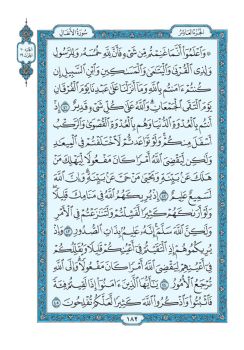 الجزء العاشر سورة الأنفال
۞ وَٱعْلَمُوٓا۟ أَنَّمَا غَنِمْتُم مِّن شَىْءٍ فَأَنَّ لِلَّهِ خُمُسَهُۥ وَلِلرَّسُولِ
وَلِذِى ٱلْقُرْبَىٰ وَٱلْيَتَـٰمَىٰ وَٱلْمَسَـٰكِينِ وَٱبْنِ ٱلسَّبِيلِ إِن
كُنتُمْ ءَامَنتُم بِٱللَّهِ وَمَآ أَنزَلْنَا عَلَىٰ عَبْدِنَا يَوْمَ ٱلْفُرْقَانِ
يَوْمَ ٱلْتَقَى ٱلْجَمْعَانِ وَٱللَّهُ عَلَىٰ كُلِّ شَىْءٍ قَدِيرٌ ٤١ إِذْ
أَنتُم بِٱلْعُدْوَةِ ٱلدُّنْيَا وَهُم بِٱلْعُدْوَةِ ٱلْقُصْوَىٰ وَٱلرَّكْبُ
أَسْفَلَ مِنكُمْ وَلَوْ تَوَاعَدتُّمْ لَٱخْتَلَفْتُمْ فِى ٱلْمِيعَـٰدِ
وَلَـٰكِن لِّيَقْضِىَ ٱللَّهُ أَمْرًا كَانَ مَفْعُولًا لِّيَهْلِكَ مَنْ
هَلَكَ عَنۢ بَيِّنَةٍ وَيَحْيَىٰ مَنْ حَىَّ عَنۢ بَيِّنَةٍ وَإِنَّ ٱللَّهَ
لَسَمِيعٌ عَلِيمٌ ٤٢ إِذْ يُرِيكَهُمُ ٱللَّهُ فِى مَنَامِكَ قَلِيلًا
وَلَوْ أَرَىٰكَهُمْ كَثِيرًا لَّفَشِلْتُمْ وَلَتَنَـٰزَعْتُمْ فِى ٱلْأَمْرِ
وَلَـٰكِنَّ ٱللَّهَ سَلَّمَ إِنَّهُۥ عَلِيمٌۢ بِذَاتِ ٱلصُّدُورِ ٤٣ وَإِذْ
يُرِيكُمُوهُمْ إِذِ ٱلْتَقَيْتُمْ فِىٓ أَعْيُنِكُمْ قَلِيلًا وَيُقَلِّلُكُمْ
فِىٓ أَعْيُنِهِمْ لِيَقْضِىَ ٱللَّهُ أَمْرًا كَانَ مَفْعُولًا وَإِلَى ٱللَّهِ
تُرْجَعُ ٱلْأُمُورُ ٤٤ يَـٰٓأَيُّهَا ٱلَّذِينَ ءَامَنُوٓا۟ إِذَا لَقِيتُمْ فِئَةً
فَٱثْبُتُوا۟ وَٱذْكُرُوا۟ ٱللَّهَ كَثِيرًا لَّعَلَّكُمْ تُفْلِحُونَ ٤٥
١٨٢